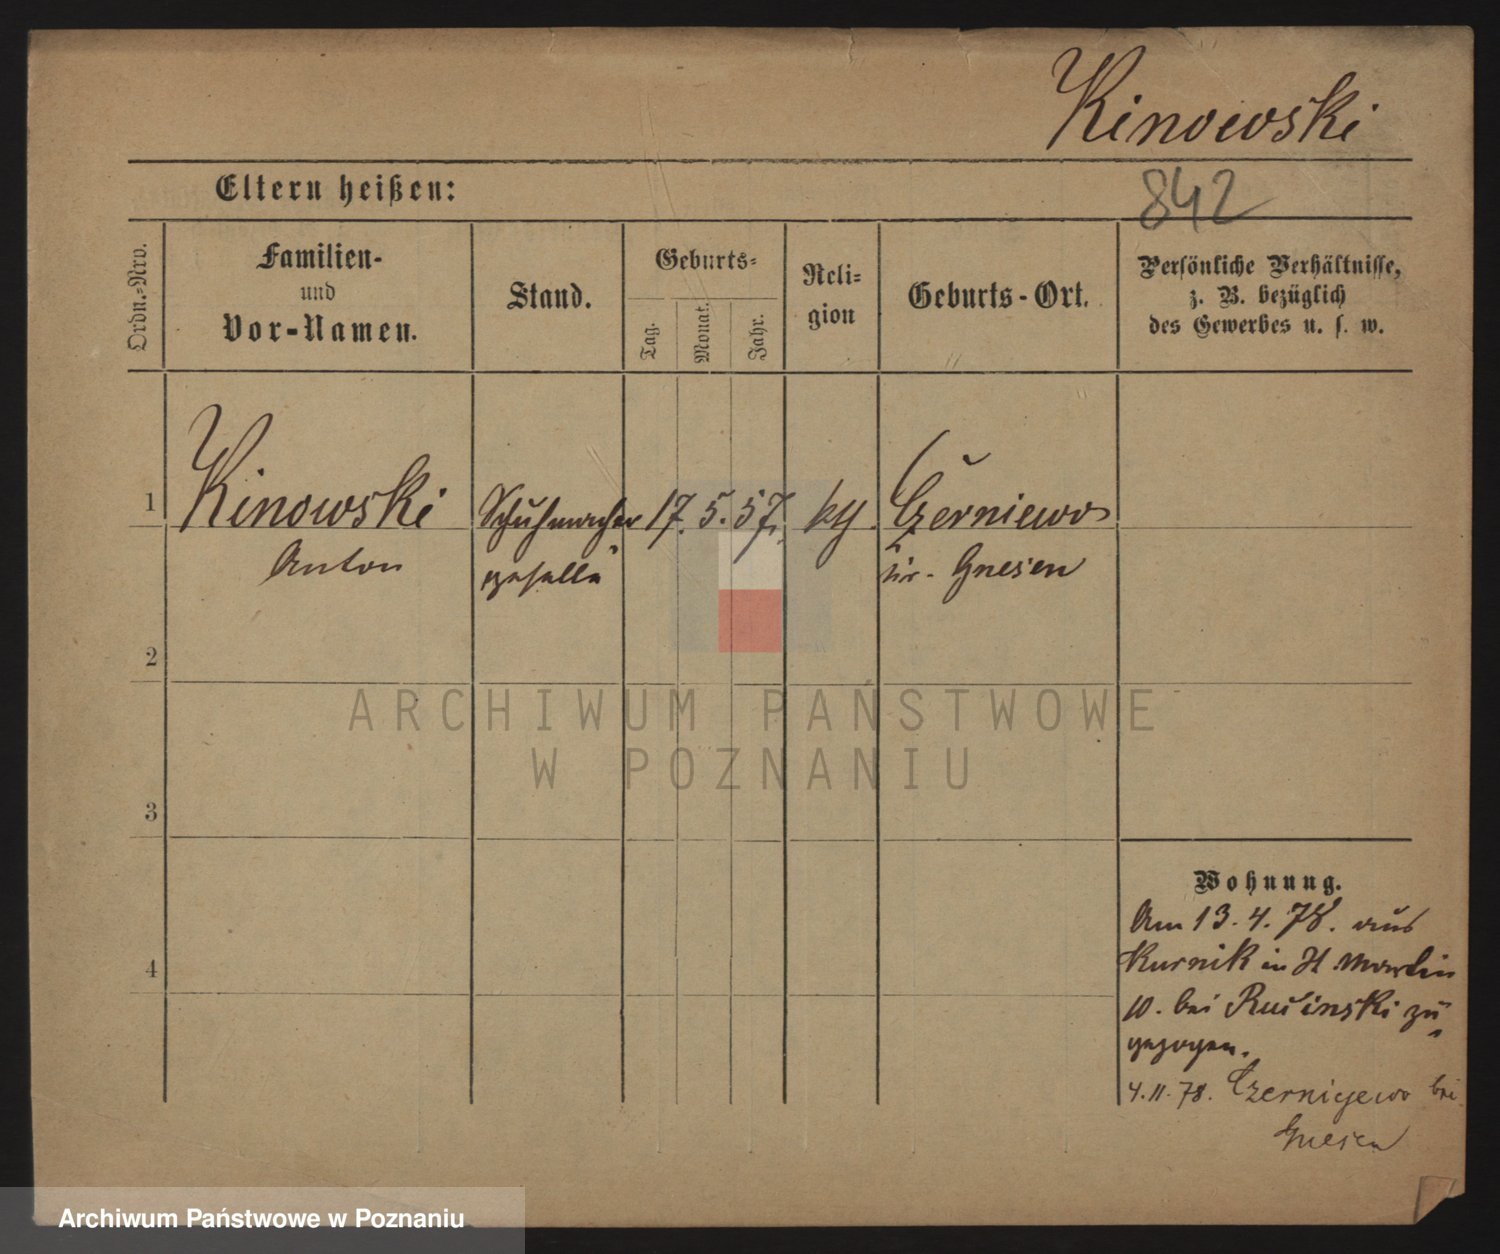 Kinowski
842
Eltern heißen:
Ordn.-Nro.
Familien-
und
Vor-Namen.
Stand.
Geburts-
Tag.
Monat.
Jahr.
Reli-
gion
Geburts-Ort.
Persönliche Verhältnisse,
z. B. bezüglich
des Gewerbes u. s. w.
1
Kinowski
Anton
Schuhmacher
geselle
17. 5. 57.
Czerniewo
kr. Gnesen
2
3
4
ARCHIWUM PAŃSTWOWE
W POZNANIU
Wohnung.
Am 13. 4. 78. aus
Kurnik in St Martin
10. bei Rucinski zu
gezogen.
4. 11. 78. Czerniejewo bei
Gnesen
Archiwum Państwowe w Poznaniu